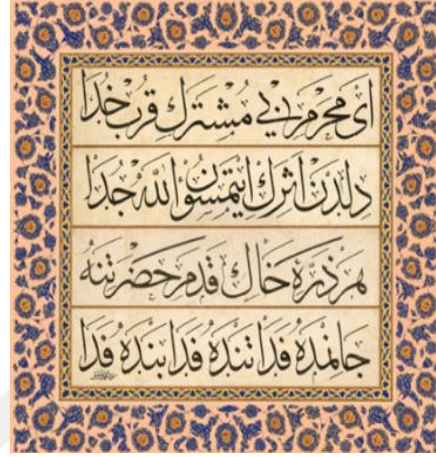 اى محرم بى مشترك قرب خدا
دلدن اثرك ايتمسون الله جدا
هر ذرهٔ خاك قدم حضرتنه
جانمده فدا تنده فدا بنده فدا